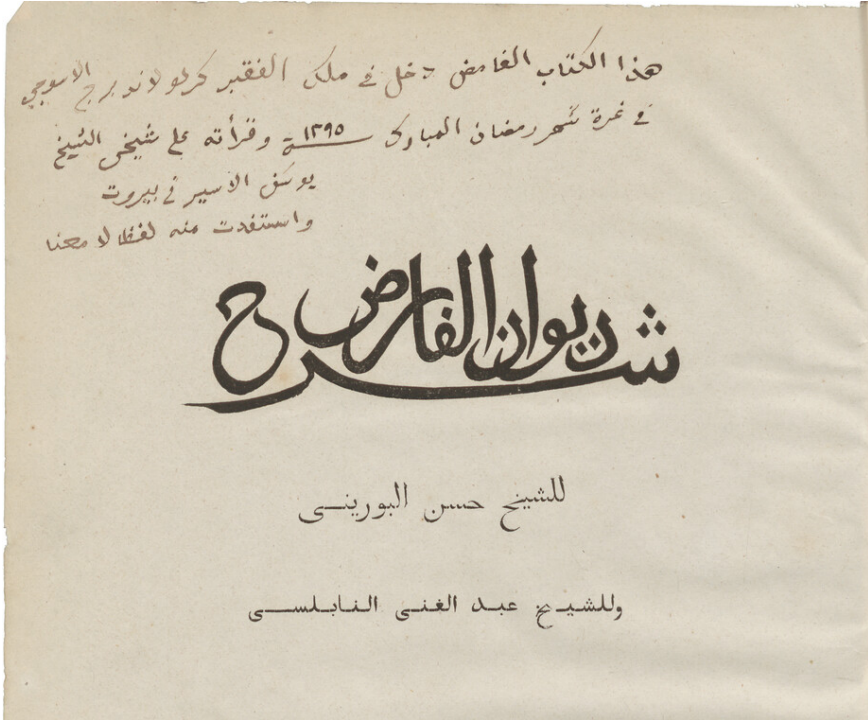 هذا الكتاب الغامض دخل في ملك الفقير كرلو لاندبرج الاسوجي
في غرة شهر رمضان المبارك سنة ١٢٩٥ وقرأته على شيخي الشيخ
يوسف الاسير في بيروت
واستفدت منه لفظا لا معنا
شرح ديوان الفارض
للشيخ حسن البورينى
وللشيخ عبد الغنى النابلسى